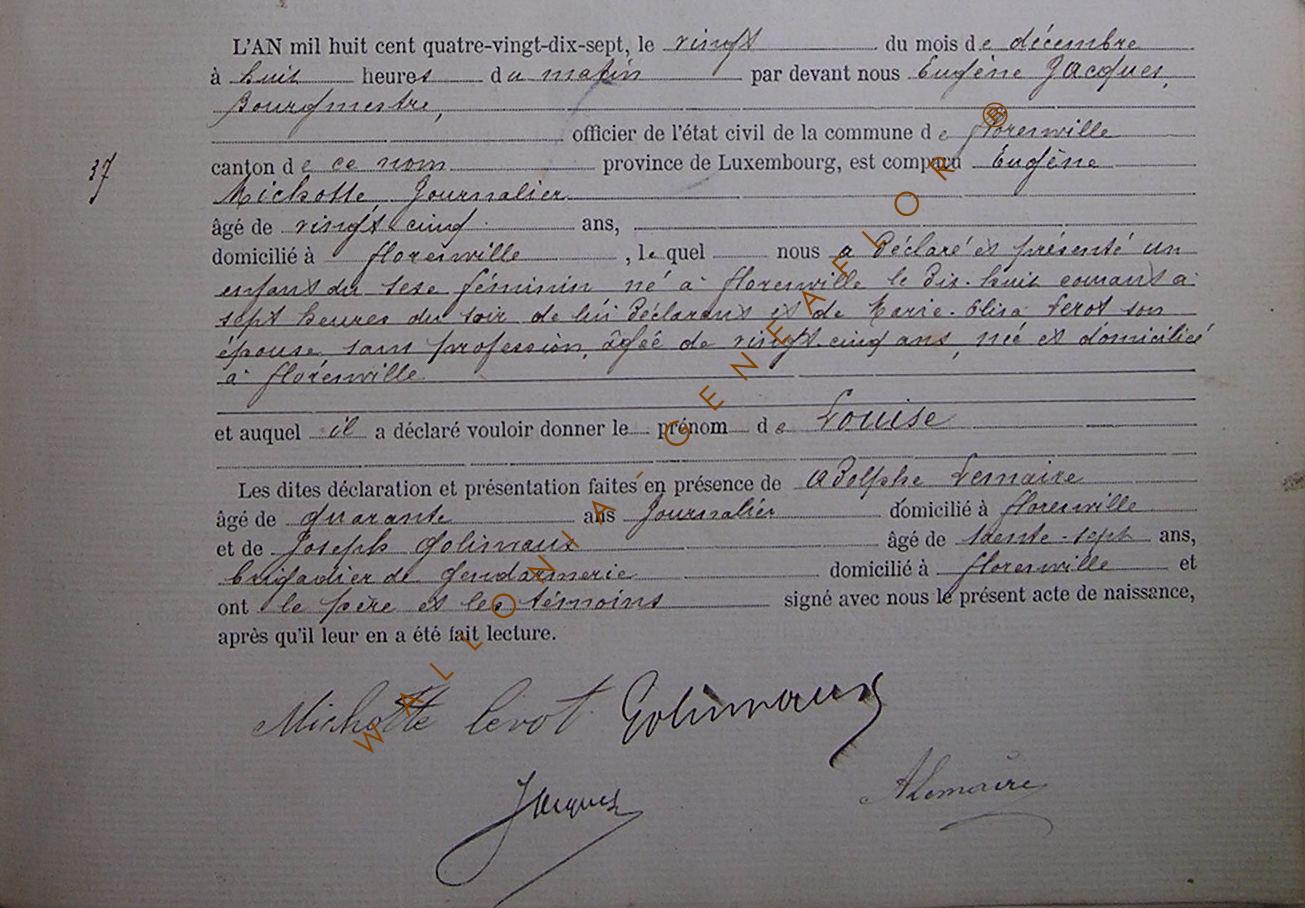 L'AN mil huit cent quatre-vingt-dix-sept, le vingt du mois de décembre
à huit heures du matin par devant nous Eugène Jacques,
Bourgmestre,
officier de l'état civil de la commune de florenville
37 canton de ce nom province de Luxembourg, est comparu Eugène
Michotte Journalier
âgé de vingt cinq ans,
domicilié à florenville , le quel nous a déclaré et présenté un
enfant du sexe féminin né à florenville le dix-huit courant à
sept heures du soir de lui déclarant et de Marie-Elisa Lerot son
épouse sans profession, âgée de vingt-cinq ans, née et domiciliée
à florenville
et auquel il a déclaré vouloir donner le prénom de Louise
Les dites déclaration et présentation faites en présence de Adolphe Lemaire
âgé de quarante ans Journalier domicilié à florenville
et de Joseph Golinvaux âgé de trente-sept ans,
brigadier de gendarmerie domicilié à florenville et
ont le père et les témoins signé avec nous le présent acte de naissance,
après qu'il leur en a été fait lecture.
Michotte Lerot Golinvaux
Jacques ALemaire
WALLONIA GENEAFLOR ®